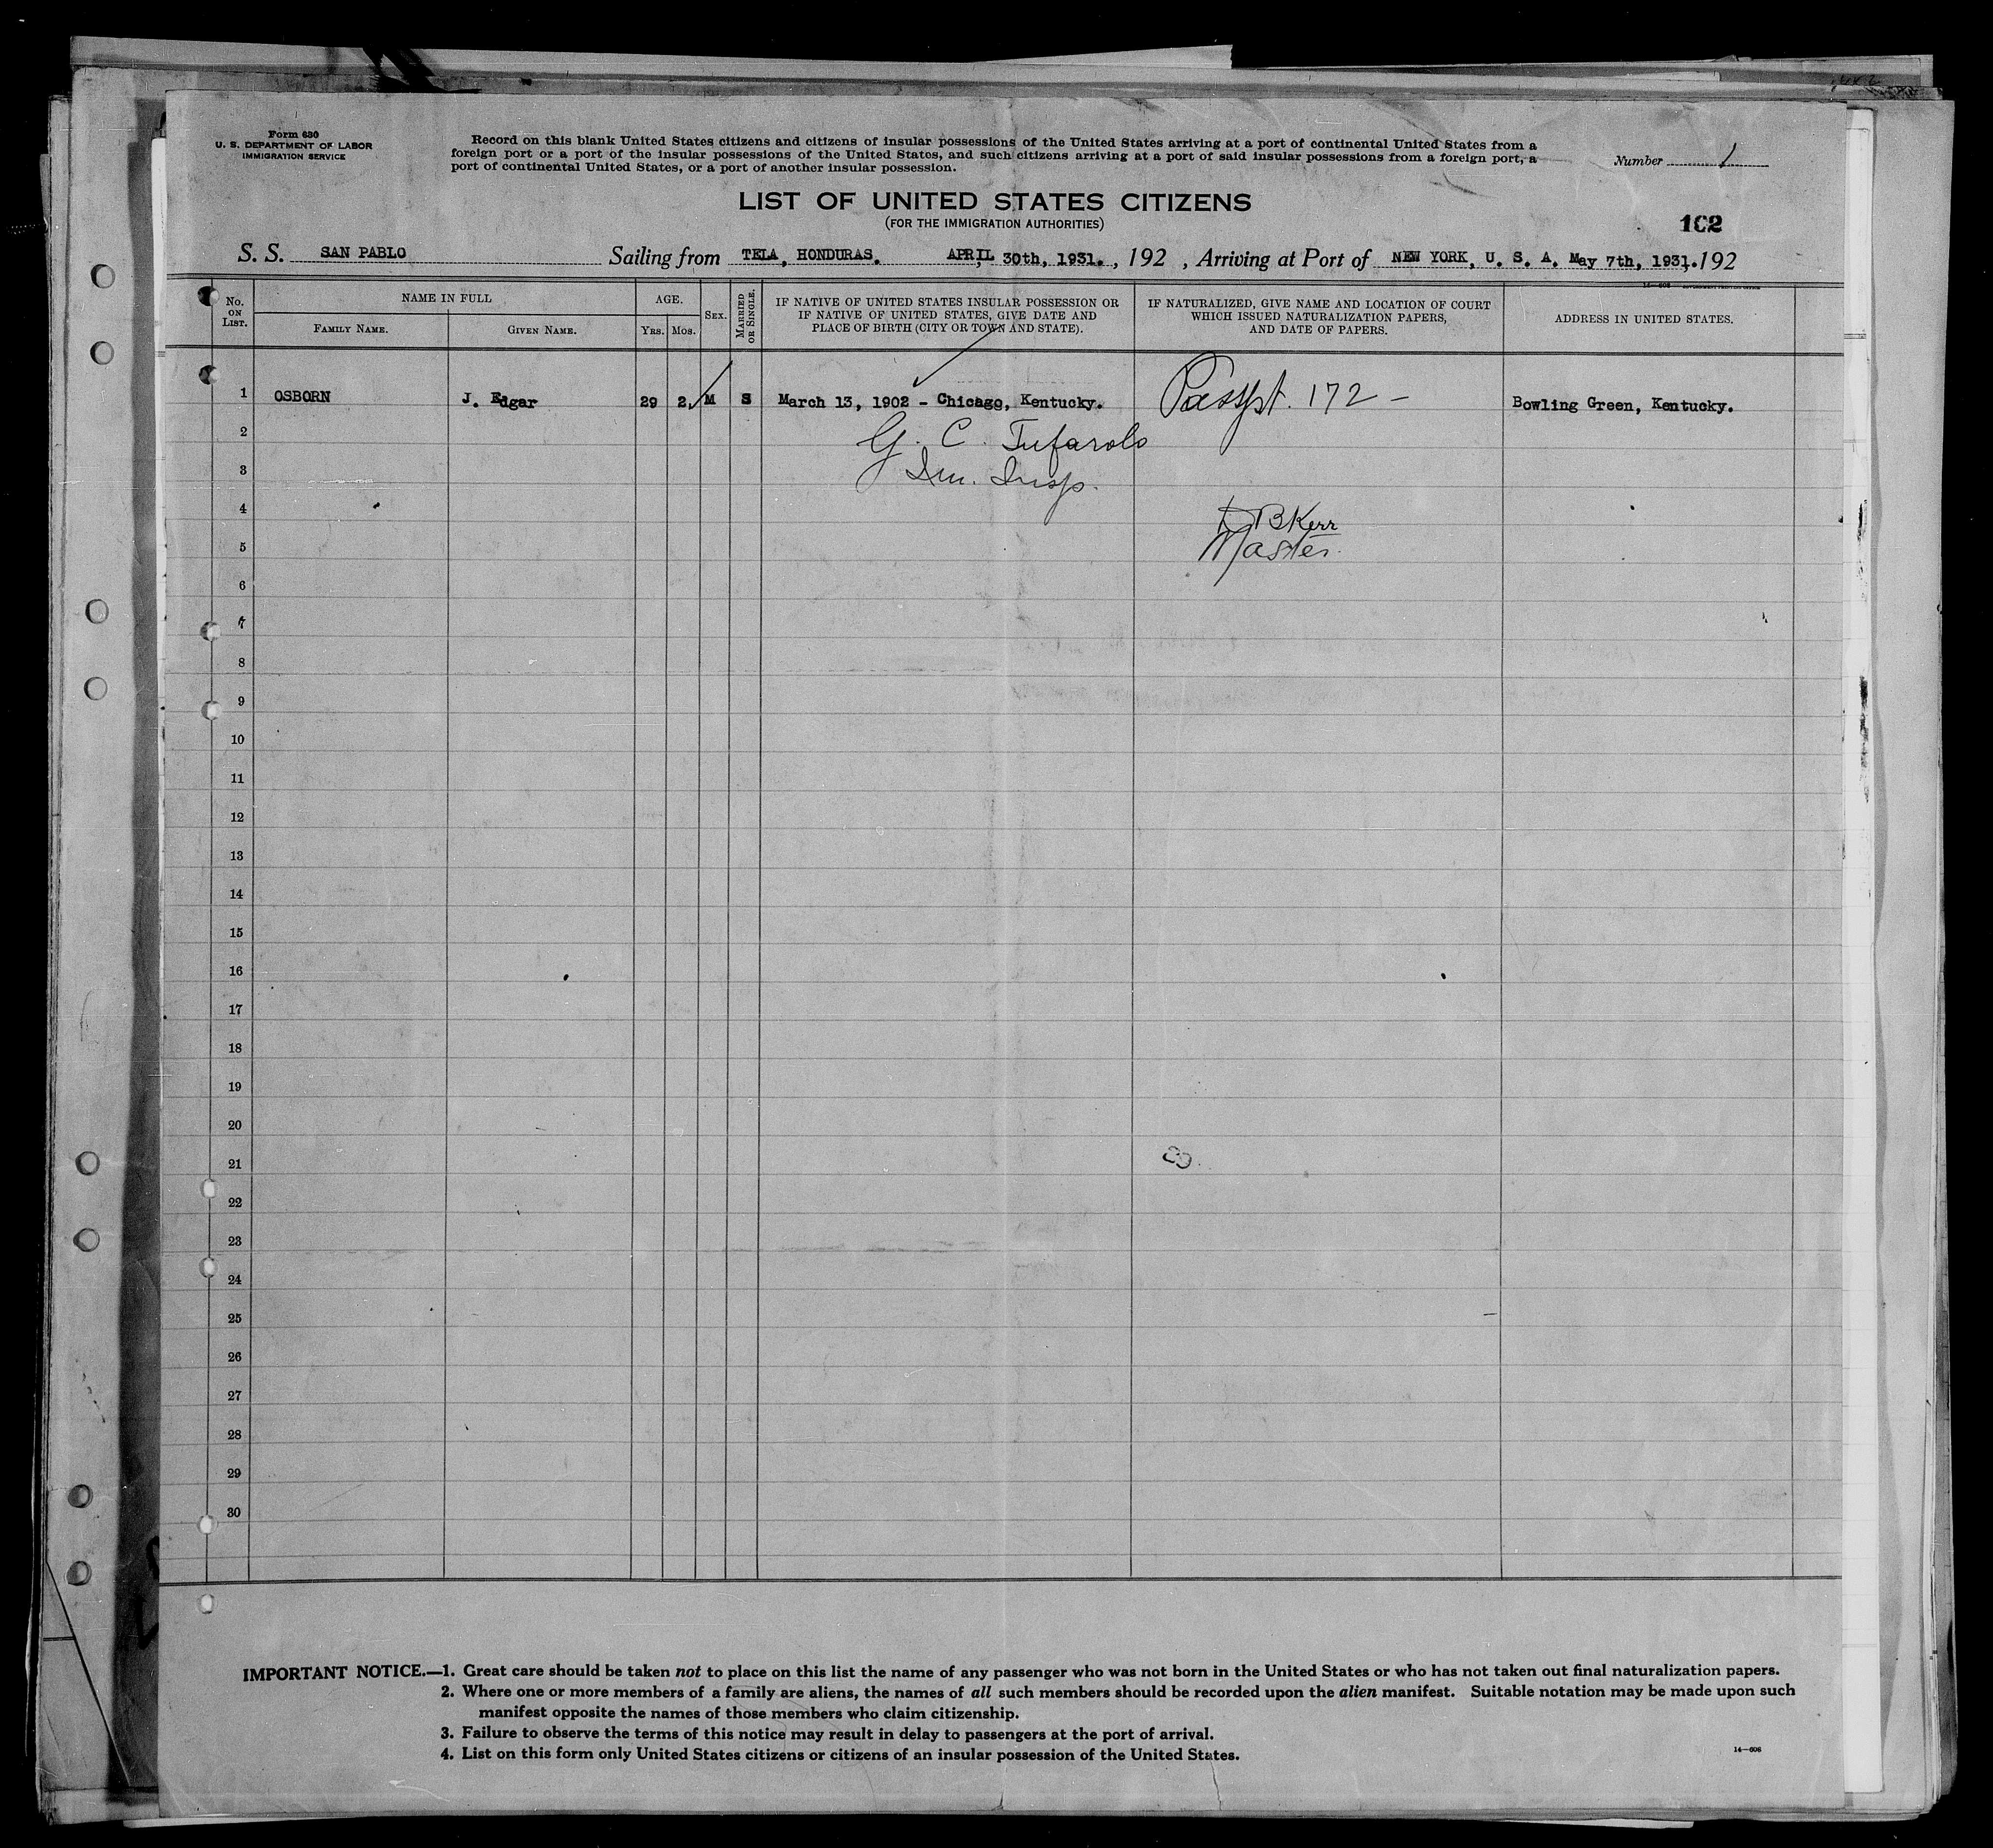 Form 630
U. S. DEPARTMENT OF LABOR
IMMIGRATION SERVICE
Record on this blank United States citizens and citizens of insular possessions of the United States arriving at a port of continental United States from a
foreign port or a port of the insular possessions of the United States, and such citizens arriving at a port of said insular possessions from a foreign port, a
port of continental United States, or a port of another insular possession.
Number 1
LIST OF UNITED STATES CITIZENS
(FOR THE IMMIGRATION AUTHORITIES)
102
S. S. SAN PABLO Sailing from TELA, HONDURAS. APRIL 30th, 1931. , 192 , Arriving at Port of NEW YORK, U. S. A. May 7th, 1931. 192
No. ON LIST.
NAME IN FULL
FAMILY NAME.
GIVEN NAME.
AGE.
YRS.
MOS.
SEX.
MARRIED OR SINGLE.
IF NATIVE OF UNITED STATES INSULAR POSSESSION OR
IF NATIVE OF UNITED STATES, GIVE DATE AND
PLACE OF BIRTH (CITY OR TOWN AND STATE).
IF NATURALIZED, GIVE NAME AND LOCATION OF COURT
WHICH ISSUED NATURALIZATION PAPERS,
AND DATE OF PAPERS.
ADDRESS IN UNITED STATES.
1 OSBORN J. Edgar 29 2 M S March 13, 1902 - Chicago, Kentucky. Passpt. 172 - Bowling Green, Kentucky.
2 G. C. Tufarolo
3 Im. Insp.
4 BKerr
5 Master.
6
7
8
9
10
11
12
13
14
15
16
17
18
19
20
21
22
23
24
25
26
27
28
29
30
IMPORTANT NOTICE.—1. Great care should be taken not to place on this list the name of any passenger who was not born in the United States or who has not taken out final naturalization papers.
2. Where one or more members of a family are aliens, the names of all such members should be recorded upon the alien manifest. Suitable notation may be made upon such
manifest opposite the names of those members who claim citizenship.
3. Failure to observe the terms of this notice may result in delay to passengers at the port of arrival.
4. List on this form only United States citizens or citizens of an insular possession of the United States.
14—608